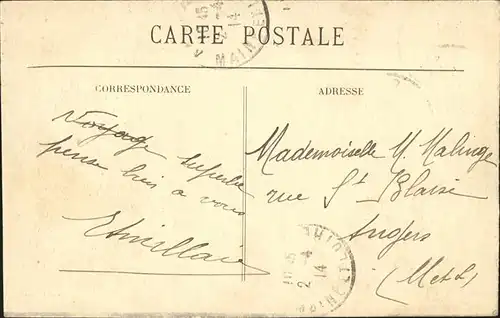 CARTE POSTALE
CORRESPONDANCE
ADRESSE
Voyage superbe
pense bien a vous
Mademoiselle M. Malinge
rue St Blaise
Angers
(M et L)